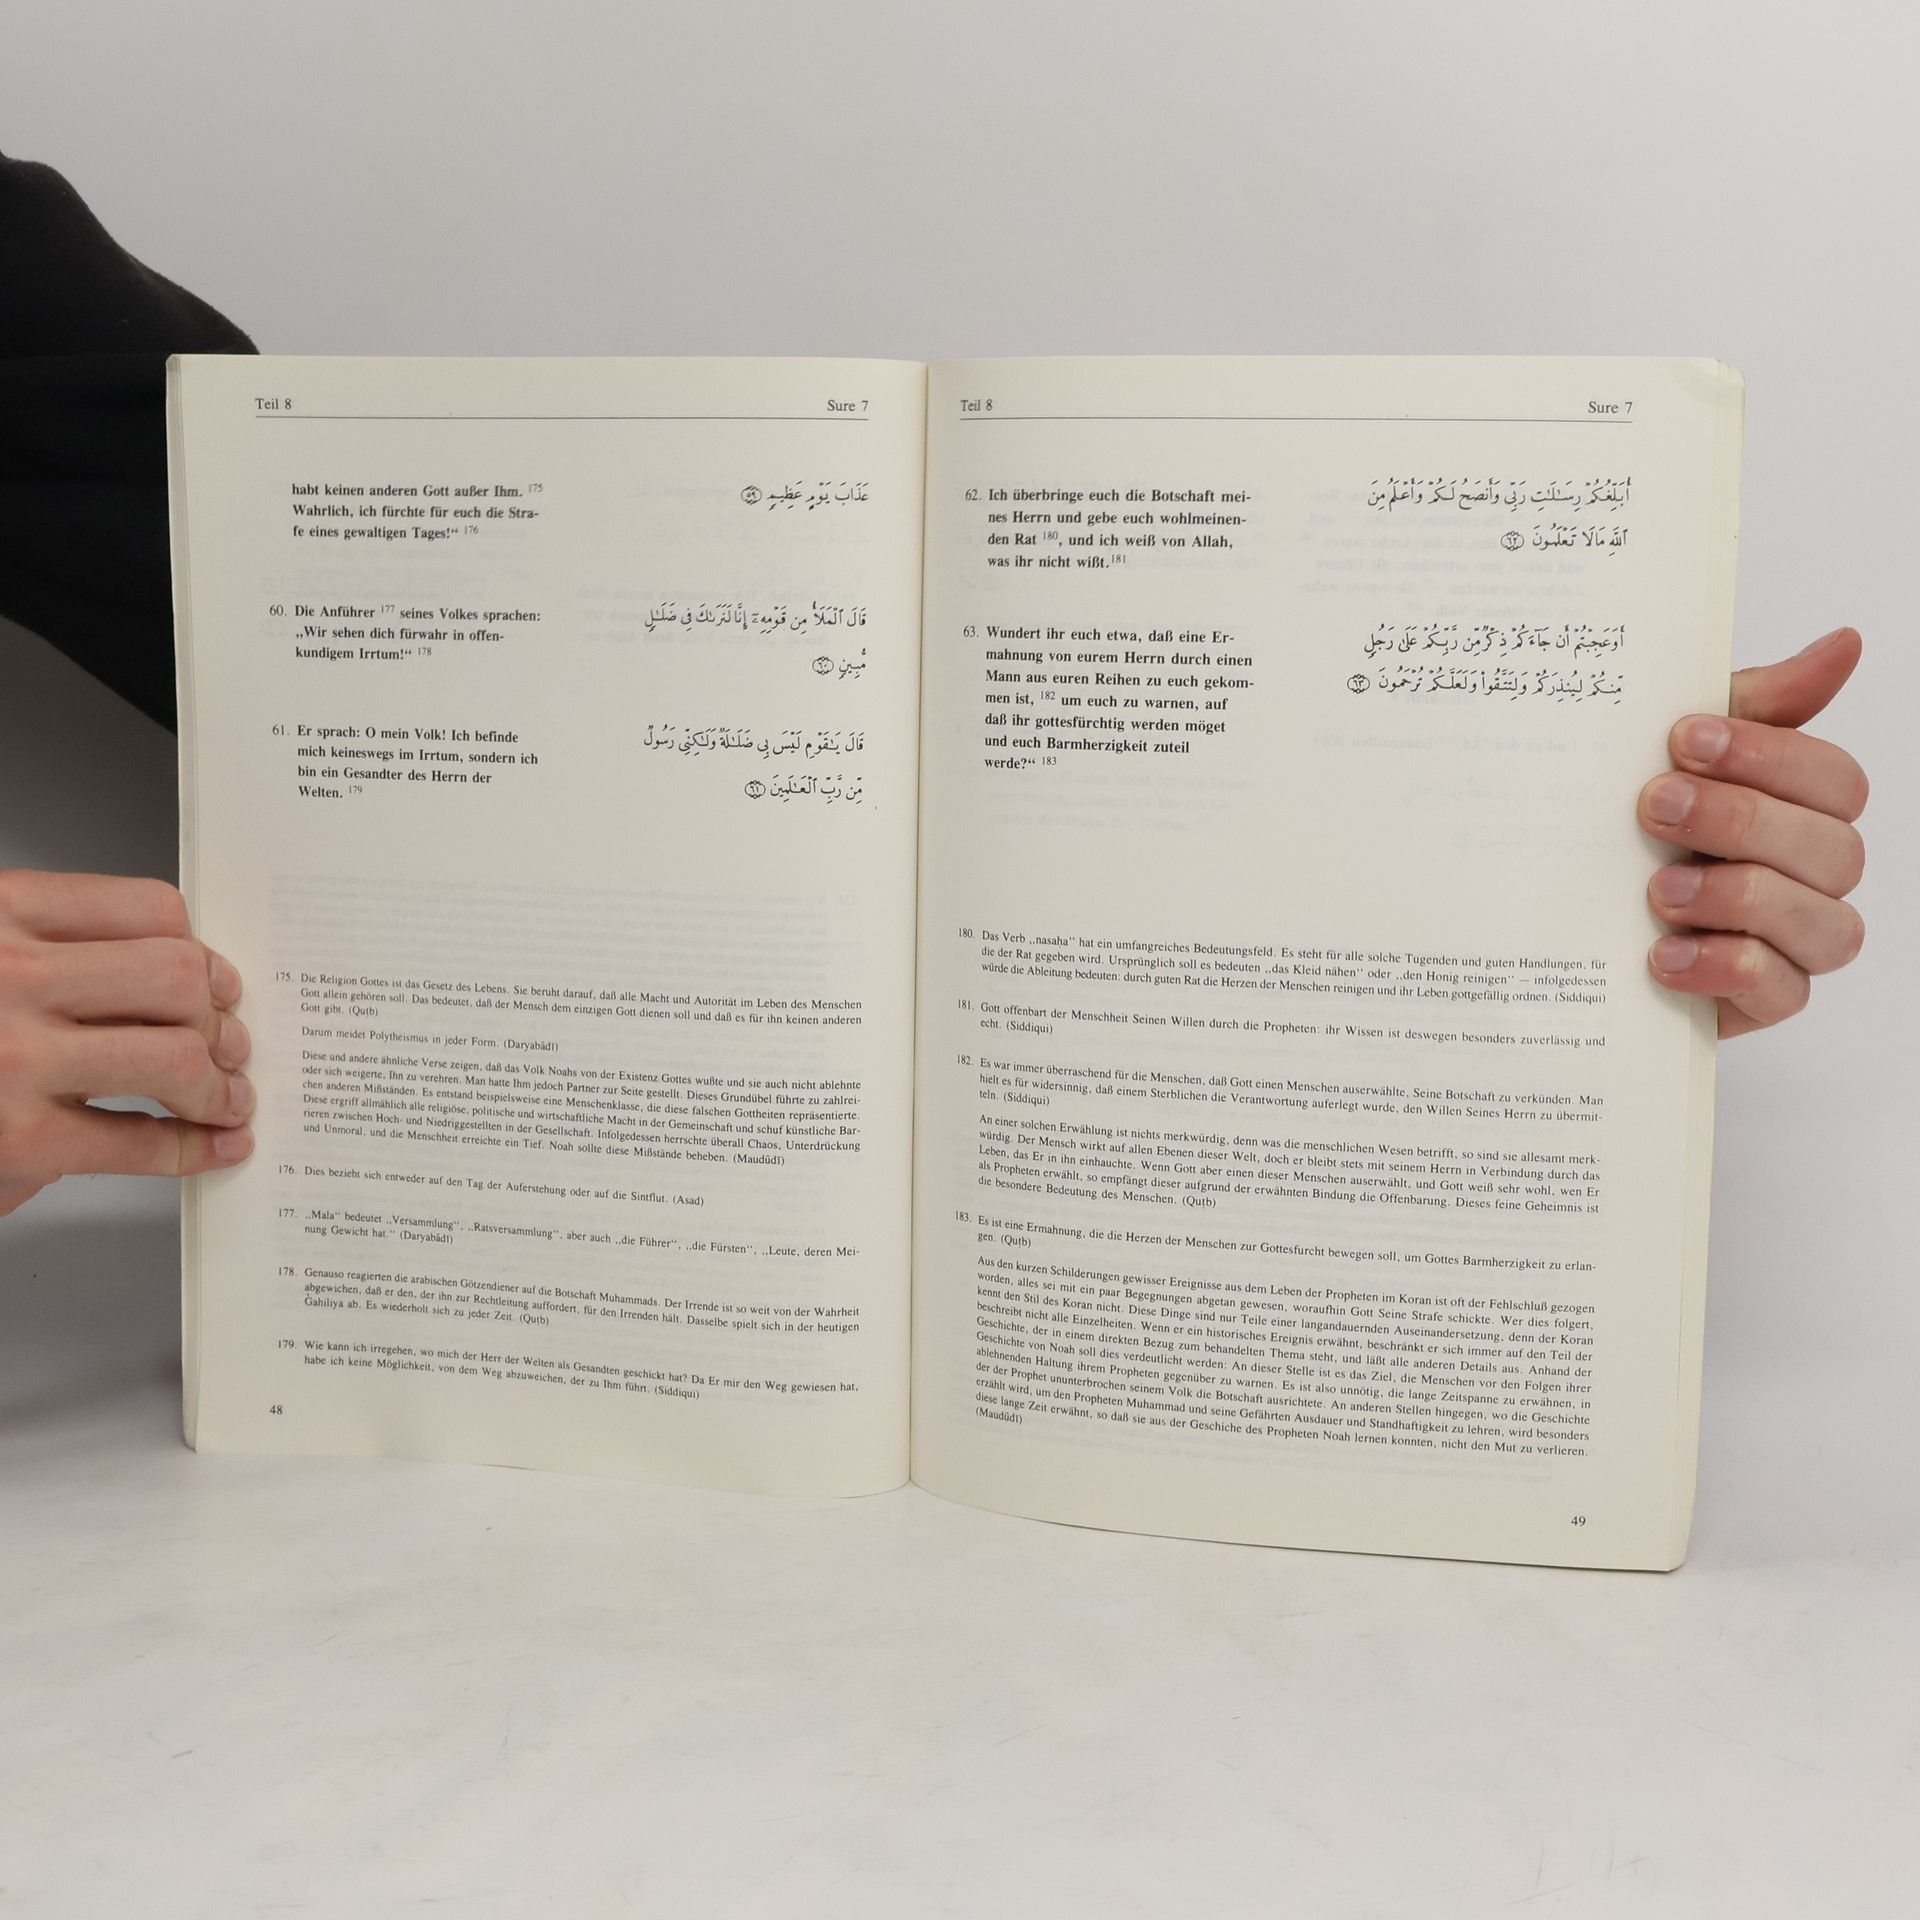 Teil 8
Sure 7
habt keinen anderen Gott außer Ihm. 175
Wahrlich, ich fürchte für euch die Stra-
fe eines gewaltigen Tages!“ 176
عَذَابَ يَوْمٍ عَظِيمٍ ٥٩
60. Die Anführer 177 seines Volkes sprachen:
„Wir sehen dich fürwahr in offen-
kundigem Irrtum!“ 178
قَالَ ٱلْمَلَأُ مِن قَوْمِهِۦٓ إِنَّا لَنَرَىٰكَ فِى ضَلَـٰلٍ
مُّبِينٍ ٦٠
61. Er sprach: O mein Volk! Ich befinde
mich keineswegs im Irrtum, sondern ich
bin ein Gesandter des Herrn der
Welten. 179
قَالَ يَـٰقَوْمِ لَيْسَ بِى ضَلَـٰلَةٌ وَلَـٰكِنِّى رَسُولٌ
مِّن رَّبِّ ٱلْعَـٰلَمِينَ ٦١
175. Die Religion Gottes ist das Gesetz des Lebens. Sie beruht darauf, daß alle Macht und Autorität im Leben des Menschen
Gott allein gehören soll. Das bedeutet, daß der Mensch dem einzigen Gott dienen soll und daß es für ihn keinen anderen
Gott gibt. (Quṭb)
Darum meidet Polytheismus in jeder Form. (Daryabādī)
Diese und andere ähnliche Verse zeigen, daß das Volk Noahs von der Existenz Gottes wußte und sie auch nicht ablehnte
oder sich weigerte, Ihn zu verehren. Man hatte Ihm jedoch Partner zur Seite gestellt. Dieses Grundübel führte zu zahlrei-
chen anderen Mißständen. Es entstand beispielsweise eine Menschenklasse, die diese falschen Gottheiten repräsentierte.
Diese ergriff allmählich alle religiöse, politische und wirtschaftliche Macht in der Gemeinschaft und schuf künstliche Bar-
rieren zwischen Hoch- und Niedriggestellten in der Gesellschaft. Infolgedessen herrschte überall Chaos, Unterdrückung
und Unmoral, und die Menschheit erreichte ein Tief. Noah sollte diese Mißstände beheben. (Maudūdī)
176. Dies bezieht sich entweder auf den Tag der Auferstehung oder auf die Sintflut. (Asad)
177. „Mala“ bedeutet „Versammlung“, „Ratsversammlung“, aber auch „die Führer“, „die Fürsten“, „Leute, deren Mei-
nung Gewicht hat.“ (Daryabādī)
178. Genauso reagierten die arabischen Götzendiener auf die Botschaft Muhammads. Der Irrende ist so weit von der Wahrheit
abgewichen, daß er den, der ihn zur Rechtleitung auffordert, für den Irrenden hält. Dasselbe spielt sich in der heutigen
Ǧahiliya ab. Es wiederholt sich zu jeder Zeit. (Quṭb)
179. Wie kann ich irregehen, wo mich der Herr der Welten als Gesandten geschickt hat? Da Er mir den Weg gewiesen hat,
habe ich keine Möglichkeit, von dem Weg abzuweichen, der zu Ihm führt. (Siddiqui)
48
Teil 8
Sure 7
62. Ich überbringe euch die Botschaft mei-
nes Herrn und gebe euch wohlmeinen-
den Rat 180, und ich weiß von Allah,
was ihr nicht wißt.181
أُبَلِّغُكُمْ رِسَـٰلَـٰتِ رَبِّى وَأَنصَحُ لَكُمْ وَأَعْلَمُ مِنَ
ٱللَّهِ مَا لَا تَعْلَمُونَ ٦٢
63. Wundert ihr euch etwa, daß eine Er-
mahnung von eurem Herrn durch einen
Mann aus euren Reihen zu euch gekom-
men ist, 182 um euch zu warnen, auf
daß ihr gottesfürchtig werden möget
und euch Barmherzigkeit zuteil
werde?“ 183
أَوَعَجِبْتُمْ أَن جَآءَكُمْ ذِكْرٌ مِّن رَّبِّكُمْ عَلَىٰ رَجُلٍ
مِّنكُمْ لِيُنذِرَكُمْ وَلِتَتَّقُوا۟ وَلَعَلَّكُمْ تُرْحَمُونَ ٦٣
180. Das Verb „nasaḥa“ hat ein umfangreiches Bedeutungsfeld. Es steht für alle solche Tugenden und guten Handlungen, für
die der Rat gegeben wird. Ursprünglich soll es bedeuten „das Kleid nähen“ oder „den Honig reinigen“ — infolgedessen
würde die Ableitung bedeuten: durch guten Rat die Herzen der Menschen reinigen und ihr Leben gottgefällig ordnen. (Siddiqui)
181. Gott offenbart der Menschheit Seinen Willen durch die Propheten: ihr Wissen ist deswegen besonders zuverlässig und
echt. (Siddiqui)
182. Es war immer überraschend für die Menschen, daß Gott einen Menschen auserwählte, Seine Botschaft zu verkünden. Man
hielt es für widersinnig, daß einem Sterblichen die Verantwortung auferlegt wurde, den Willen Seines Herrn zu übermit-
teln. (Siddiqui)
An einer solchen Erwählung ist nichts merkwürdig, denn was die menschlichen Wesen betrifft, so sind sie allesamt merk-
würdig. Der Mensch wirkt auf allen Ebenen dieser Welt, doch er bleibt stets mit seinem Herrn in Verbindung durch das
Leben, das Er in ihn einhauchte. Wenn Gott aber einen dieser Menschen auserwählt, und Gott weiß sehr wohl, wen Er
als Propheten erwählt, so empfängt dieser aufgrund der erwähnten Bindung die Offenbarung. Dieses feine Geheimnis ist
die besondere Bedeutung des Menschen. (Quṭb)
183. Es ist eine Ermahnung, die die Herzen der Menschen zur Gottesfurcht bewegen soll, um Gottes Barmherzigkeit zu erlan-
gen. (Quṭb)
Aus den kurzen Schilderungen gewisser Ereignisse aus dem Leben der Propheten im Koran ist oft der Fehlschluß gezogen
worden, alles sei mit ein paar Begegnungen abgetan gewesen, woraufhin Gott Seine Strafe schickte. Wer dies folgert,
kennt den Stil des Koran nicht. Diese Dinge sind nur Teile einer langandauernden Auseinandersetzung, denn der Koran
beschreibt nicht alle Einzelheiten. Wenn er ein historisches Ereignis erwähnt, beschränkt er sich immer auf den Teil der
Geschichte, der in einem direkten Bezug zum behandelten Thema steht, und läßt alle anderen Details aus. Anhand der
Geschichte von Noah soll dies verdeutlicht werden: An dieser Stelle ist es das Ziel, die Menschen vor den Folgen ihrer
ablehnenden Haltung ihrem Propheten gegenüber zu warnen. Es ist also unnötig, die lange Zeitspanne zu erwähnen, in
der der Prophet ununterbrochen seinem Volk die Botschaft ausrichtete. An anderen Stellen hingegen, wo die Geschichte
erzählt wird, um den Propheten Muhammad und seine Gefährten Ausdauer und Standhaftigkeit zu lehren, wird besonders
diese lange Zeit erwähnt, so daß sie aus der Geschiche des Propheten Noah lernen konnten, nicht den Mut zu verlieren.
(Maudūdī)
49